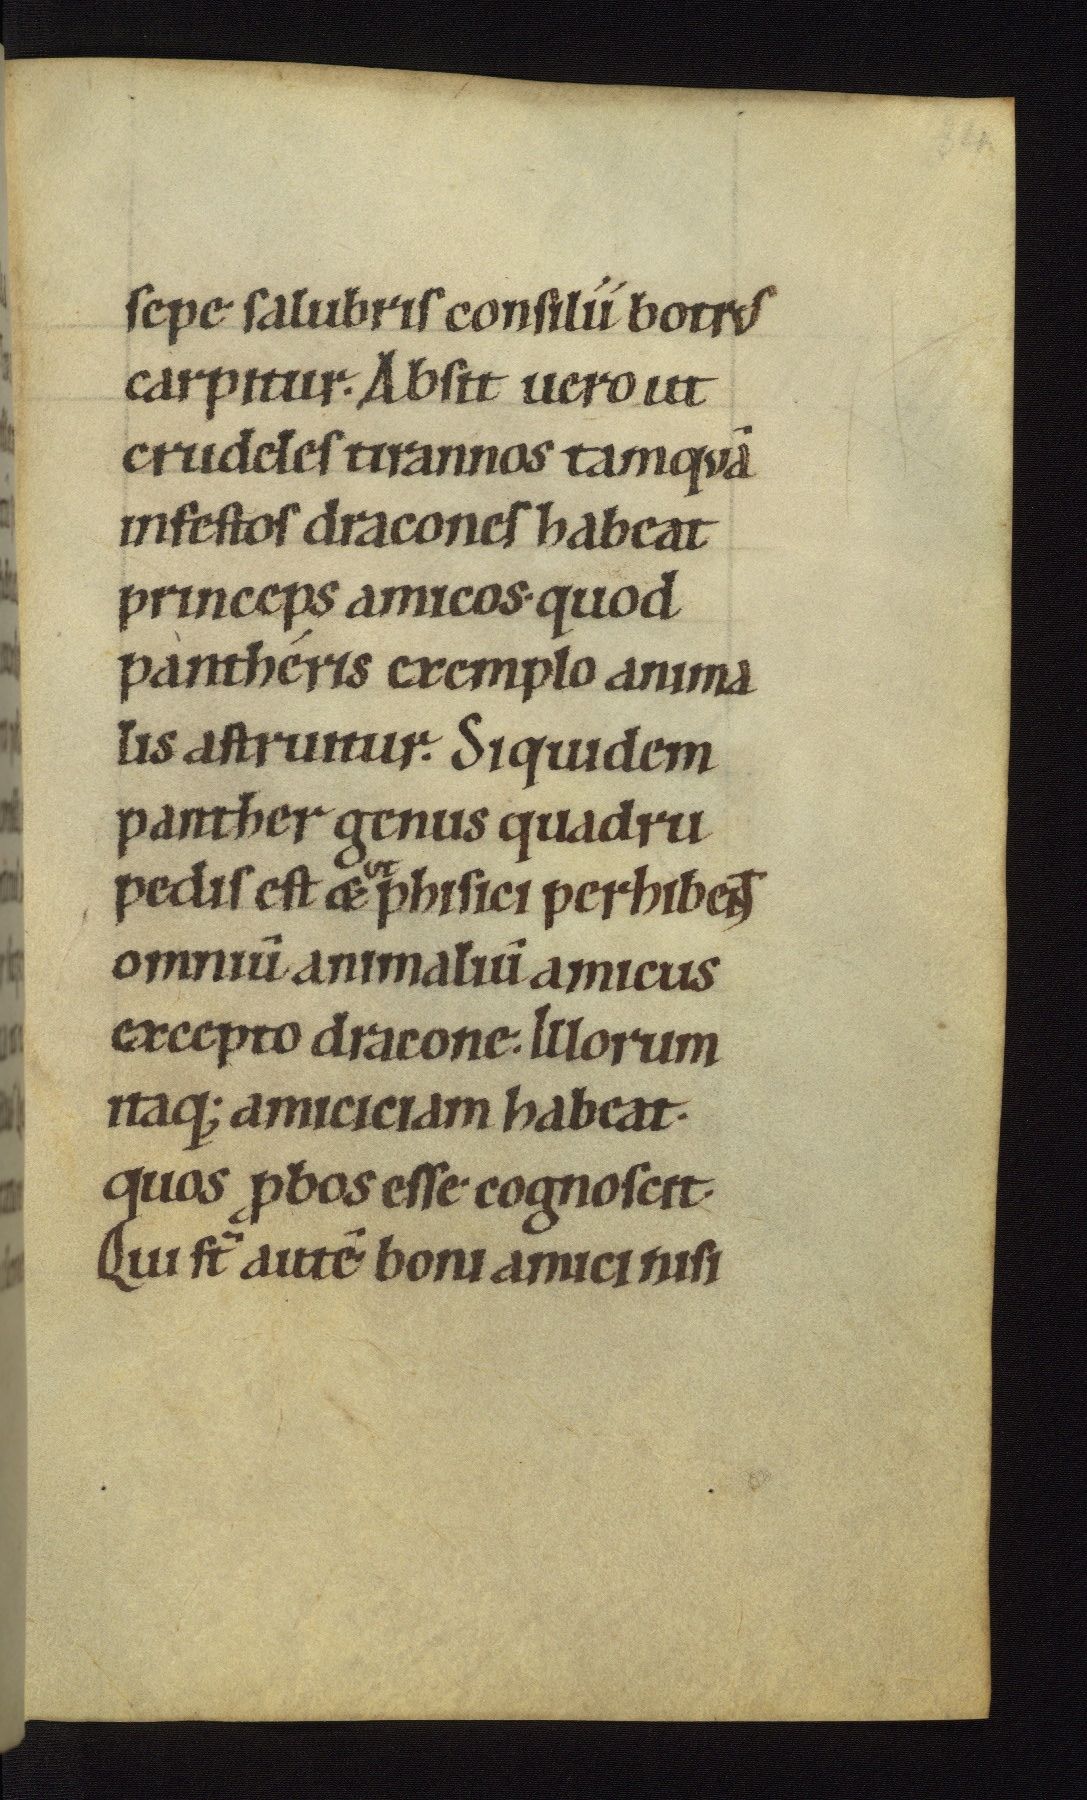 sepe salubris consilii botrus
carpitur. Absit uero ut
crudeles tirannos tamquā
infestos dracones habeat
princeps amicos. quod
pantheris exemplo anima
lis astruitur. Siquidem
panther genus quadru
pedis est & ut phisici perhibent
omniū animaliū amicus
excepto dracone. Illorum
itaq; amiciciam habeat.
quos ꝓbos esse cognoscit.
Qui st̄ autē boni amici nisi